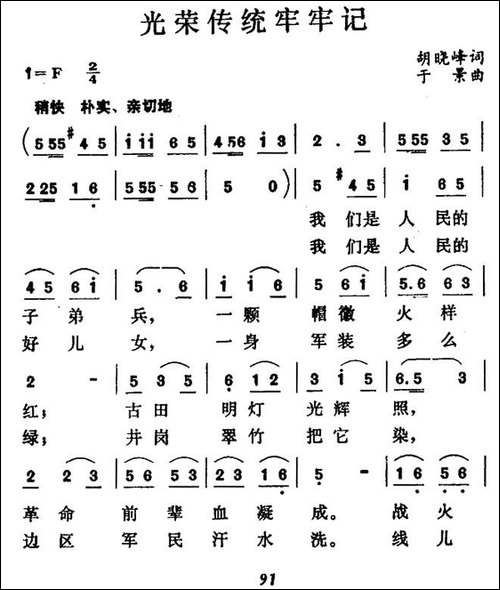 光荣传统牢牢记
胡晓峰词
1=F 2/4
于 景曲
稍快 朴实、亲切地
(5 55 #4 5 | i ii 6 5 | 4 56 i 3 | 2 . 3 | 5 55 3 5 |
2 25 1 6 | 5 55 5 6 | 5 0) | 5 #4 5 | i 6 5 |
我 们是 人 民的
我 们是 人 民的
4 5 6 i | 5 . 6 | i i 6 | 5 6 i | 5. 6 6 3 |
子 弟 兵, 一 颗 帽 徽 火 样
好 儿 女, 一 身 军 装 多 么
2 - | 5 3 5 | 6 1 2 | 3 i 5 | 6. 5 3 |
红; 古 田 明 灯 光 辉 照,
绿; 井 岗 翠 竹 把 它 染,
2 2 3 | 5 6 5 3 | 2 3 1 6 | 5 - | 1 6 5 6 |
革 命 前 辈 血 凝 成。 战 火
边 区 军 民 汗 水 洗。 线 儿
91